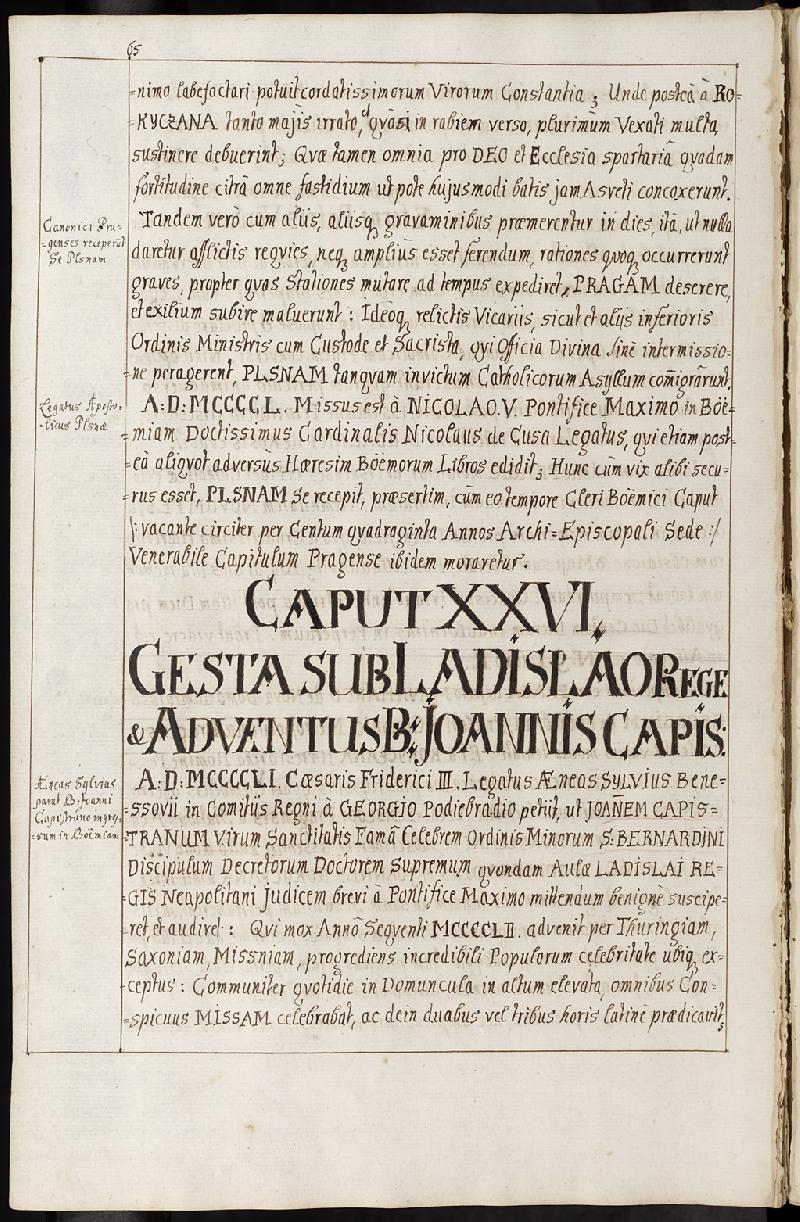 65
=nimo labefactari potuit cordatissimorum Virorum Constantia; Unde posteà à RO=
KYCZANA tanto majis irrato, et qvasi in rabiem verso, plurimùm Vexati multa
sustinere debuerint; Qvæ tamen omnia pro DEO et Ecclesia spartariâ qvadam
fortitudine citrà omne fastidium ut pote hujusmodi batis jam Asveti concoxerunt.
Canonici Pra=
=genses receperūt
Se Plsnam
Tandem verò cum aliis, aliisq, gravaminibus præmerentur in dies, ità, ut nulla
daretur afflictis reqvies, neq, ampliùs esset ferendum, rationes qvoq, occurrerunt
graves, propter qvas Stationes mutare ad tempus expediret, PRAGAM deserere,
et exilium subire maluerunt: Ideòq, relictis Vicariis, sicut et alijs inferioris
Ordinis Ministris cum Custode et Sacrista, qvi Officia Divina sinè intermissio=
=ne peragerent, PLSNAM tanqvam invictum Catholicorum Asyllum com̄igrârunt.
Legatus Aposto=
=licus Plsnæ
A: D: MCCCCL. Missus est à NICOLAO. V. Pontifice Maximo in Böe=
=miam Doctissimus Cardinalis Nicolaus de Cusa Legatus, qvi etiam post=
=eà aliqvot adversùs Hæresim Böemorum Libros edidit; Hunc cùm vix alibi secu=
=rus esset, PLSNAM Se recepit, præsertim, cùm eo tempore Cleri Böemici Caput
/: vacante circiter per Centum qvadraginta Annos Archi=Episcopali Sede :/
Venerabile Capitulum Pragense ibidem moraretur.
CAPUT XXVI.
GESTA SUB LADISLAO REGE
& ADVENTUS B: JOANNIS CAPIS:
Æneas Sylvius
parat B: Joanni
Capistrano ingres=
=sum in Boëmiam
A: D: MCCCCLI. Cæsaris Friderici III. Legatus Æneas SYLVIUS Bene=
=ssovii in Comitijs Regni à GEORGIO Podiebradio petiit, ut JOANEM CAPIS=
=TRANUM Virum Sanctitatis Famâ Celebrem Ordinis Minorum S: BERNARDINI
Discipulum Decretorum Doctorem Supremum qvondam Aulæ LADISLAI RE=
GIS Neapolitani Judicem brevi à Pontifice Maximo mittendum benignè suscipe=
=ret, et audiret: Qvi mox Annô Seqventi MCCCCLII. advenit per Thuringiam,
Saxoniam, Missniam, progrediens incredibili Populorum celebritate ubiq, ex=
=ceptus: Communiter qvotidie in Domuncula in altum elevata, omnibus Con=
=spicuus MISSAM celebrabat, ac dein duabus vel tribus horis latinè prædicavit,